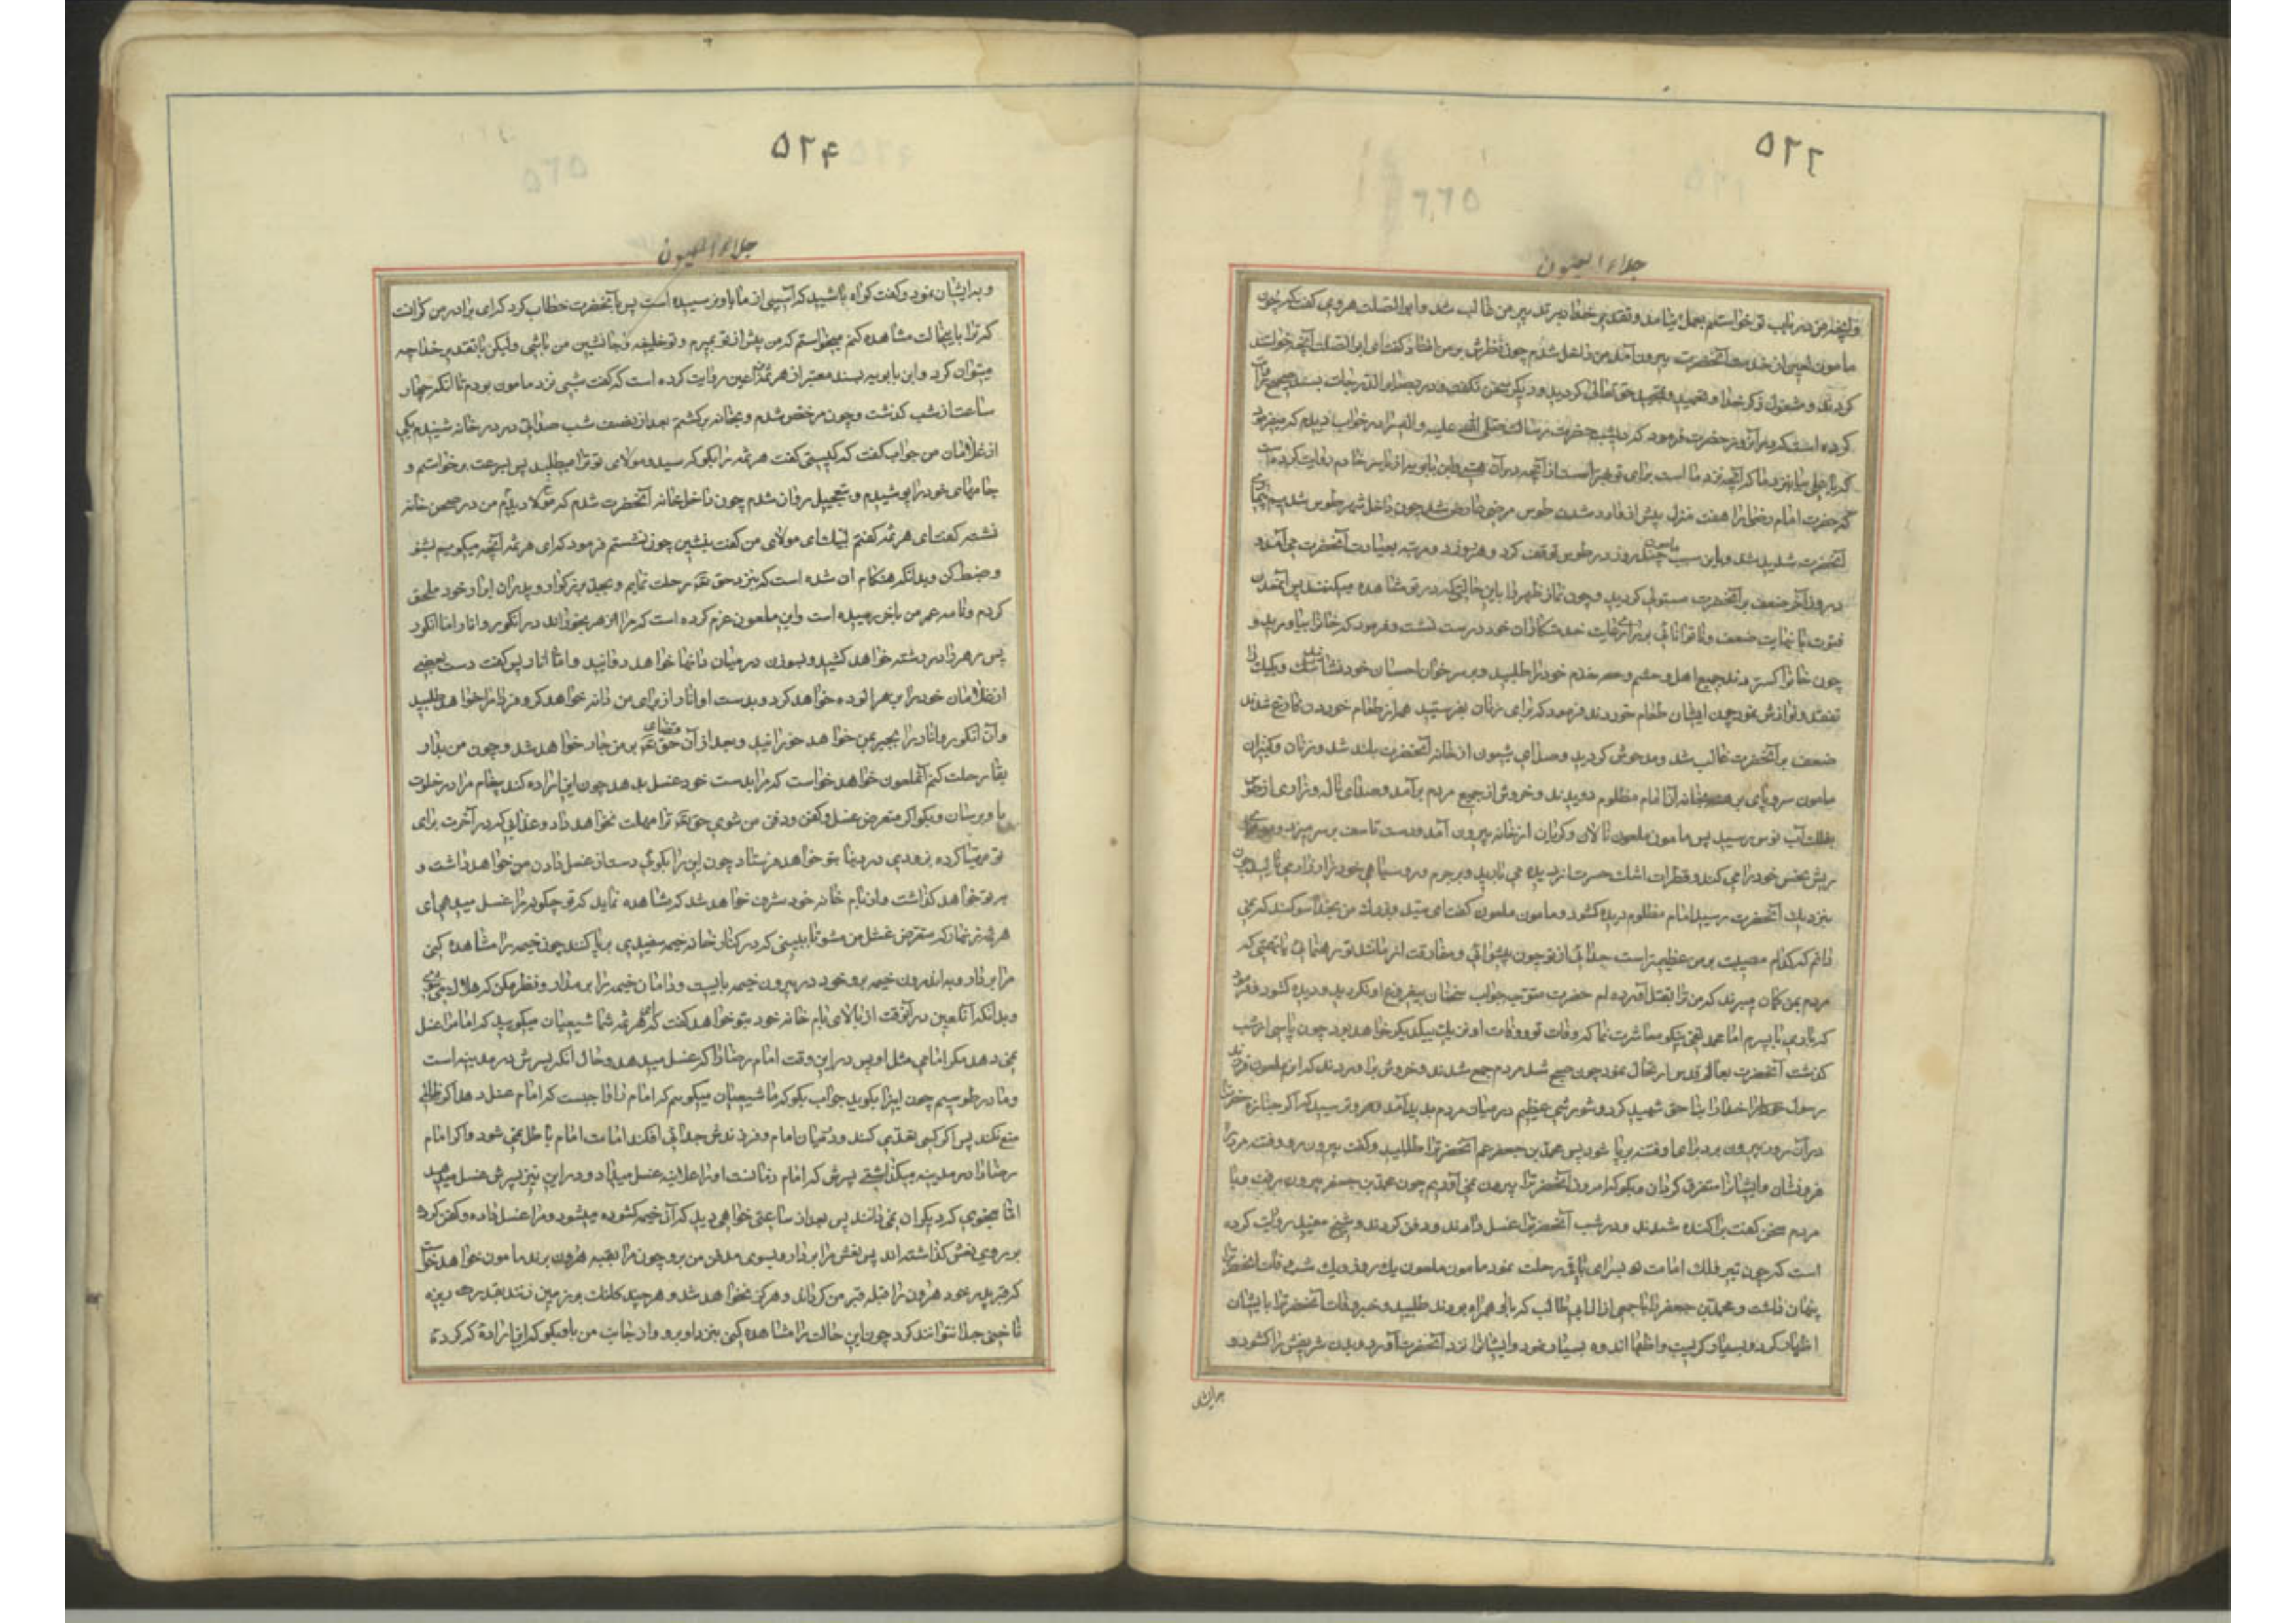 ۵۲۳
جلاء العیون
وآنچه من در باب تو خواستم بعمل نیامد و تقدیر خدا بر تدبیر من غالب شد و ابو الصلت هروی گفت که چون
مامون لعین از خدمت آنحضرت بیرون آمد من داخل شدم چون نظرش بر من افتاد گفت ای ابو الصلت آنچه خواستند
کردند و مشغول ذکر خدا و تحمید و تمجید حق تعالی گردید و دیگر سخن نگفت و در بصایر الدرجات بسند صحیح
کرده است که در آنروز حضرت فرمود که دیشب حضرت رسالت صلی الله علیه و اله را در خواب دیدم که میفرمود
که یا علی بیا بنزد ما که آنچه نزد ما است برای تو بهتر است از آنچه در آن هستی و ابن بابویه از یاسر خادم روایت کرده
که حضرت امام رضا را هفت منزل پیش از وارد شدن طوس مرضی عارض شد چون داخل شهر طوس شدیم
آنحضرت شدید شد و باین سبب مامون چند روز در طوس توقف کرد و هر روز دو مرتبه بعیادت آنحضرت می آمد
در روز آخر ضعف بر آنحضرت مستولی گردید و چون نماز ظهر ادا
نهایت ضعف و ناتوانائی برای رعایت خدمتکاران خود درست نشست و فرمود که خانرا بیاورید و
چون خانرا گستردند جمیع اهل و حشم و خدم خود را طلبید و بر سر خوان احسان خود نشاند و یک یک
تفقد و نوازش نمود چون ایشان طعام خوردند فرمود که برای زنان بفرستید چون از طعام خوردن فارغ شدند
ضعف بر آنحضرت غالب شد و مدهوش گردید و صدای شیون از خانه آنحضرت بلند شد و زنان و کنیزان
مامون سر و پای برهنه بخانه آن امام مظلوم دویدند و خروش از جمیع مردم بر آمد و صدای ناله و زاری از طوس
بفلک آبنوس رسید پس مامون ملعون نالان و گریان از خانه بیرون آمد و دست تاسف بر سر میزد و موی
ریش نحس خود را می کند و قطرات اشک حسرت از دیده می بارید و بر جرم و رو سیاهی خود زار زار می نالید چون
بنزدیک آنحضرت رسید امام مظلوم دیده گشود و مامون ملعون گفت ای سید و بزرگ من بخدا سوگند که نمی
دانم که کدام مصیبت بر من عظیمتر است جدائی از تو چون پیشوائی و مفارقت از مانند تو رهنمائی یا تهمتی که
مردم بمن گمان میبرند که من ترا بقتل آورده ام حضرت متوجه جواب سخنان بیفروغ او نگردید و دیده گشود و فرمود
که باری با پسرم امام محمد تقی نیکو معاشرت نما که وفات تو و وفات او نزدیک بیکدیگر خواهد بود چون پاسی از شب
گذشت آنحضرت بعالم قدس ارتحال نمود چون صبح شد مردم جمع شدند و خروش بر اوردند که این ملعون فرزند
رسول خدا را بنا حق شهید کرد و شورش عظیم در میان مردم پدید آمد و مامون ترسید که اگر جنازه حضرت را
در آنروز بیرون برد برای او فتنه برپا شود پس محمد بن جعفر عم آنحضرترا طلبید و گفت بیرون رو و فتنه مردم را
فرونشان و ایشانرا متفرق گردان و بگو که امروز آنحضرترا بیرون نمی آوریم چون محمد بن جعفر بیرون رفت و با
مردم سخن گفت پراکنده شدند و در شب آنحضرترا غسل دادند و دفن کردند و شیخ مفید روایت کرده
است که چون نیر فلک امامت بسرای باقی رحلت نمود مامون ملعون یک روز و یک شب وفات آنحضرترا
پنهان داشت و محمد بن جعفر را با جمعی از آل ابی طالب که با او همراه بودند طلبید و خبر وفات آنحضرترا بایشان
اظهار کرد و بسیار گریست و اظهار اندوه بسیار نمود و ایشانرا نزد آنحضرت آورد و بدن شریفش را گشود و
بر ایشان
۵۲۴
جلاء العیون
و بر ایشان نمود و گفت گواه باشید که آسیبی از ما باو نرسیده است پس با آنحضرت خطاب کرد که ای برادر من گرانست
که ترا باینحالت مشاهده کنم میخواستم که من پیش از تو بمیرم و تو خلیفه و جانشین من باشی ولیکن با تقدیر خدا چه
میتوان کرد و ابن بابویه بسند معتبر از هرثمة بن اعین روایت کرده است که گفت شبی نزد مامون بودم تا آنکه چهار
ساعت از شب گذشت و چون مرخص شدم و بخانه برگشتم بعد از نصف شب صدائی در در خانه شنیدم یکی
از غلامان من جواب گفت که کیستی گفت هرثمه را بگو که سید و مولای تو ترا میطلبد پس بسرعت برخواستم و
جامهای خود را پوشیدم و بتعجیل روان شدم چون داخل خانه آنحضرت شدم که مولا دیدم من در صحن خانه
نشسته گفت ای هرثمه گفتم لبیک ای مولای من گفت بنشین چون نشستم فرمود که ای هرثمه آنچه میگویم بشنو
و ضبط کن و بدانکه هنگام آن شده است که بنزد حق تعه رحلت نمایم و بجد بزرگوار و پدران ابرار خود ملحق
گردم و نامه عمر من باخر رسیده است و این ملعون عزم کرده است که مرا زهر بخوراند در انگور و انار و اما انگور
پس زهر در رشته خواهد کشید و بسوزن در میان دانها خواهد دوانید و اما انار پس گفت دست بعضی
از غلامان خود را بزهر الوده خواهد کرد و بدست او انار از برای من دانه خواهد کرد و فردا مرا خواهد طلبید
و آن انگور و انار را بجبر بمن خواهد خورانید و بعد از آن قضای حق تعه بر من جاری خواهد شد و چون من بدار
بقا رحلت کنم آنملعون خواهد خواست که مرا بدست خود غسل بدهد چون این اراده کند پیغام مرا در خلوت
باو برسان و بگو اگر متعرض غسل و کفن و دفن من شوی حق تعه ترا مهلت نخواهد داد و عذابی که در آخرت برای
تو مهیا کرده بزودی در دنیا بتو خواهد فرستاد چون این را بگوئی دست از غسل دادن من خواهد داشت و
بر تو خواهد گذاشت و از بام خانه خود مشرف خواهد شد که مشاهده نماید که تو چگونه مرا غسل میدهی ای
هرثمه زنهار که متعرض غسل من مشو تا ببینی که در کنار خانه خیمه سفیدی بر پا کنند چون خیمه را مشاهده کنی
مرا بردار و به اندرون خیمه بر و خود در بیرون خیمه بایست و دامان خیمه را بر مدار و نظر مکن که هلاک میشوی
و بدانکه آنلعین در آنوقت از بالای بام خانه خود بتو خواهد گفت که ای هرثمه شما شیعیان میگویید که امام را غسل
نمی دهد مگر امامی مثل او پس در این وقت امام رضا را که غسل میدهد و حال انکه پسرش در مدینه است
و ما در طوسیم چون اینرا بگوید جواب بگو که ما شیعیان میگویم که امام را واجبست که امام غسل دهد اگر ظالمی
منع نکند پس اگر کسی تعدی کند و در میان امام و فرزندش جدائی افکند امامت امام باطل نمی شود و اگر امام
رضا را در مدینه میگذاشتی پسرش که امام زمانست او را علانیه غسل میداد و در این نیز پسرش غسل میدهد
اما بنحوی که دیگران نمی دانند پس بعد از ساعتی خواهی دید که آن خیمه گشوده میشود و مرا غسل داده و کفن کرده
بر روی نعش گذاشته اند پس نعش مرا بردار و بسوی مدفن من برو چون مرا بقبه هرون برند مامون خواهد خواست
که قبر پدر خود هرون را قبله قبر من گرداند و هرگز نخواهد شد و هر چند کلنگ بر زمین زنند بقدر ریزه
ناخنی جدا نتوانند کرد چون این حالت را مشاهده کنی بنزد او برو و از جانب من باو بگو که این اراده که کرده